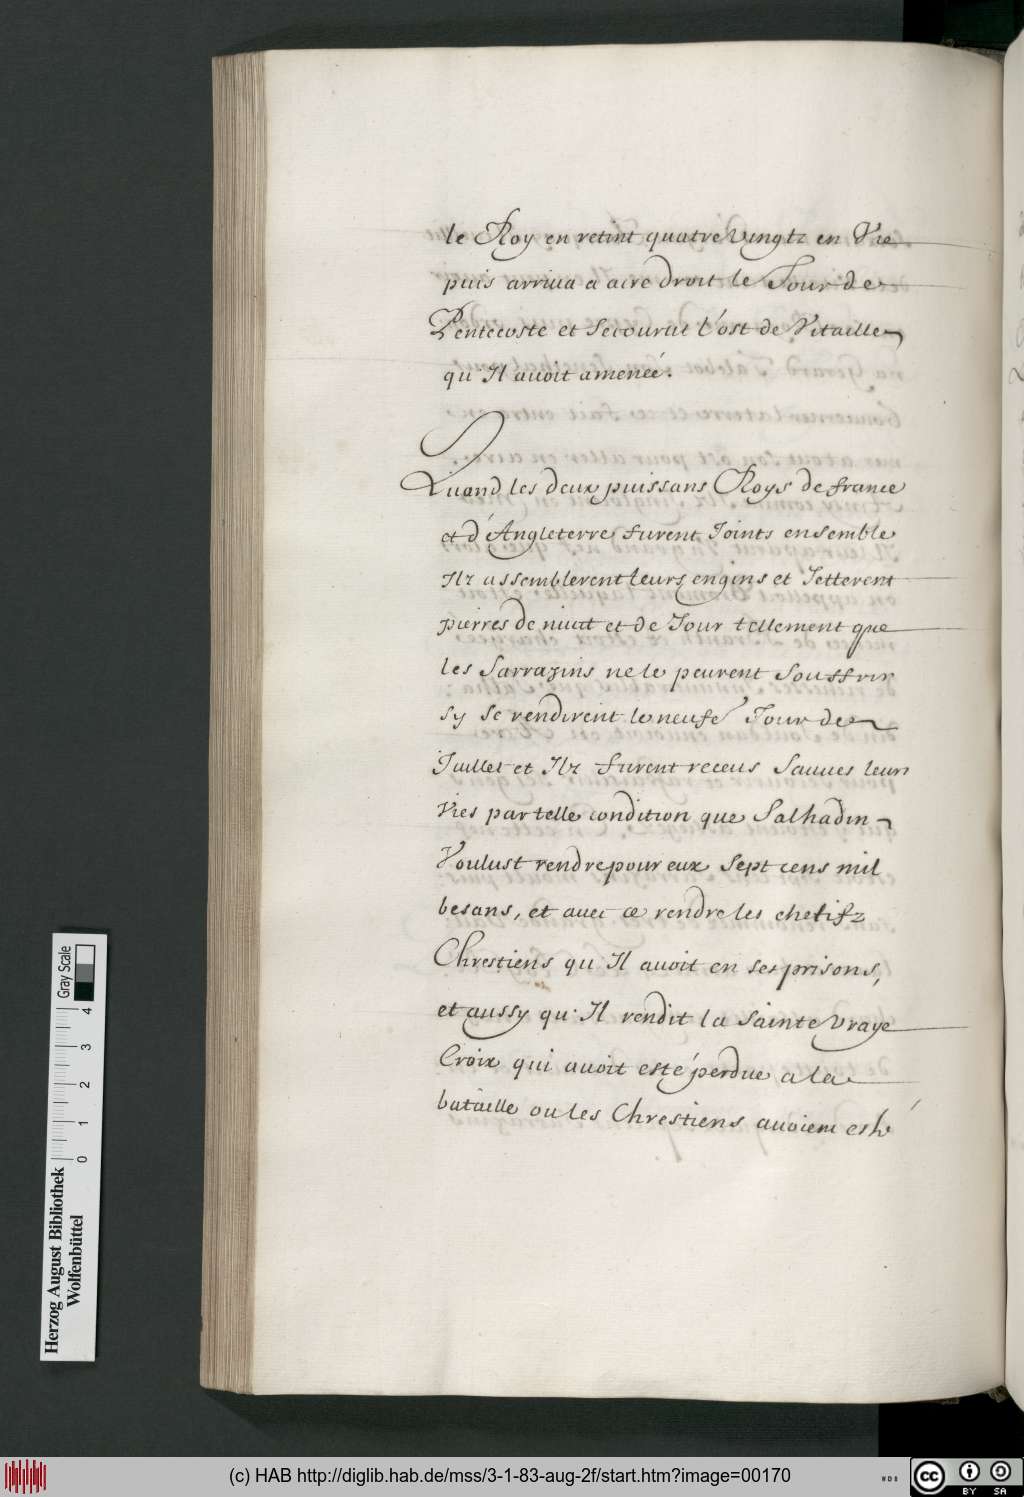 le Roy en retint quatre vingtz en Vie
puis arriua a aire droit le Jour de
Pentecoste et Secourut l'ost de Vitaille
qu'Il auoit amenéé.
Quand les deux puissans Roys de france
et d'Angleterre furent Joints ensemble
Ilz assemblerent leurs engins et Jetterent
pierres de nuict et de Jour tellement que
les Sarrazins ne le peurent Souffrir
sy Se rendirent le neufe Jour de
Juillet et Ilz furent receus Sauues leurs
Vies par telle condition que Salhadin
Voulust rendre pour eux Sept cens mil
besans, et auec ce rendre les chetifz
Chrestiens qu'Il auoit en ses prisons,
et aussy qu'Il rendit la Sainte Vraye
Croix qui auoit esté perdue a la
bataille ou les Chrestiens auoient esté
Gray Scale
0 1 2 3 4
Herzog August Bibliothek
Wolfenbüttel
(c) HAB http://diglib.hab.de/mss/3-1-83-aug-2f/start.htm?image=00170
WDB
cc BY SA